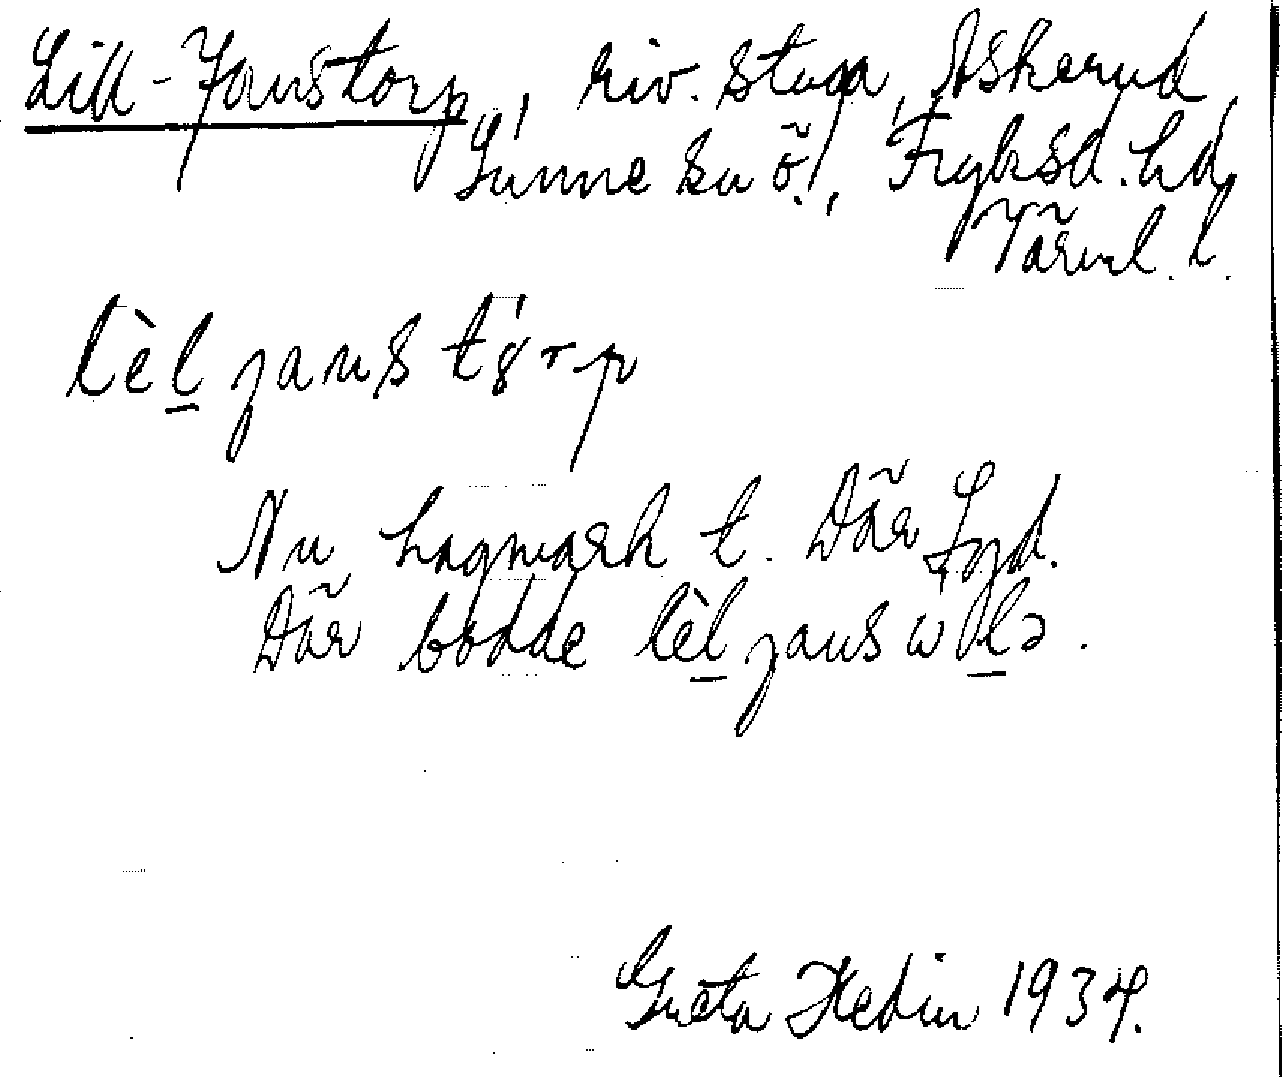 Lill-Janstorp, riv. stuga, Askerud,
Sunne sn ö., Fryksd. hd,
Värml. l.
lèl jans tȣ́rp
Nu hagmark t. Där
Där bodde lèl jans
Greta Hedin 1934.